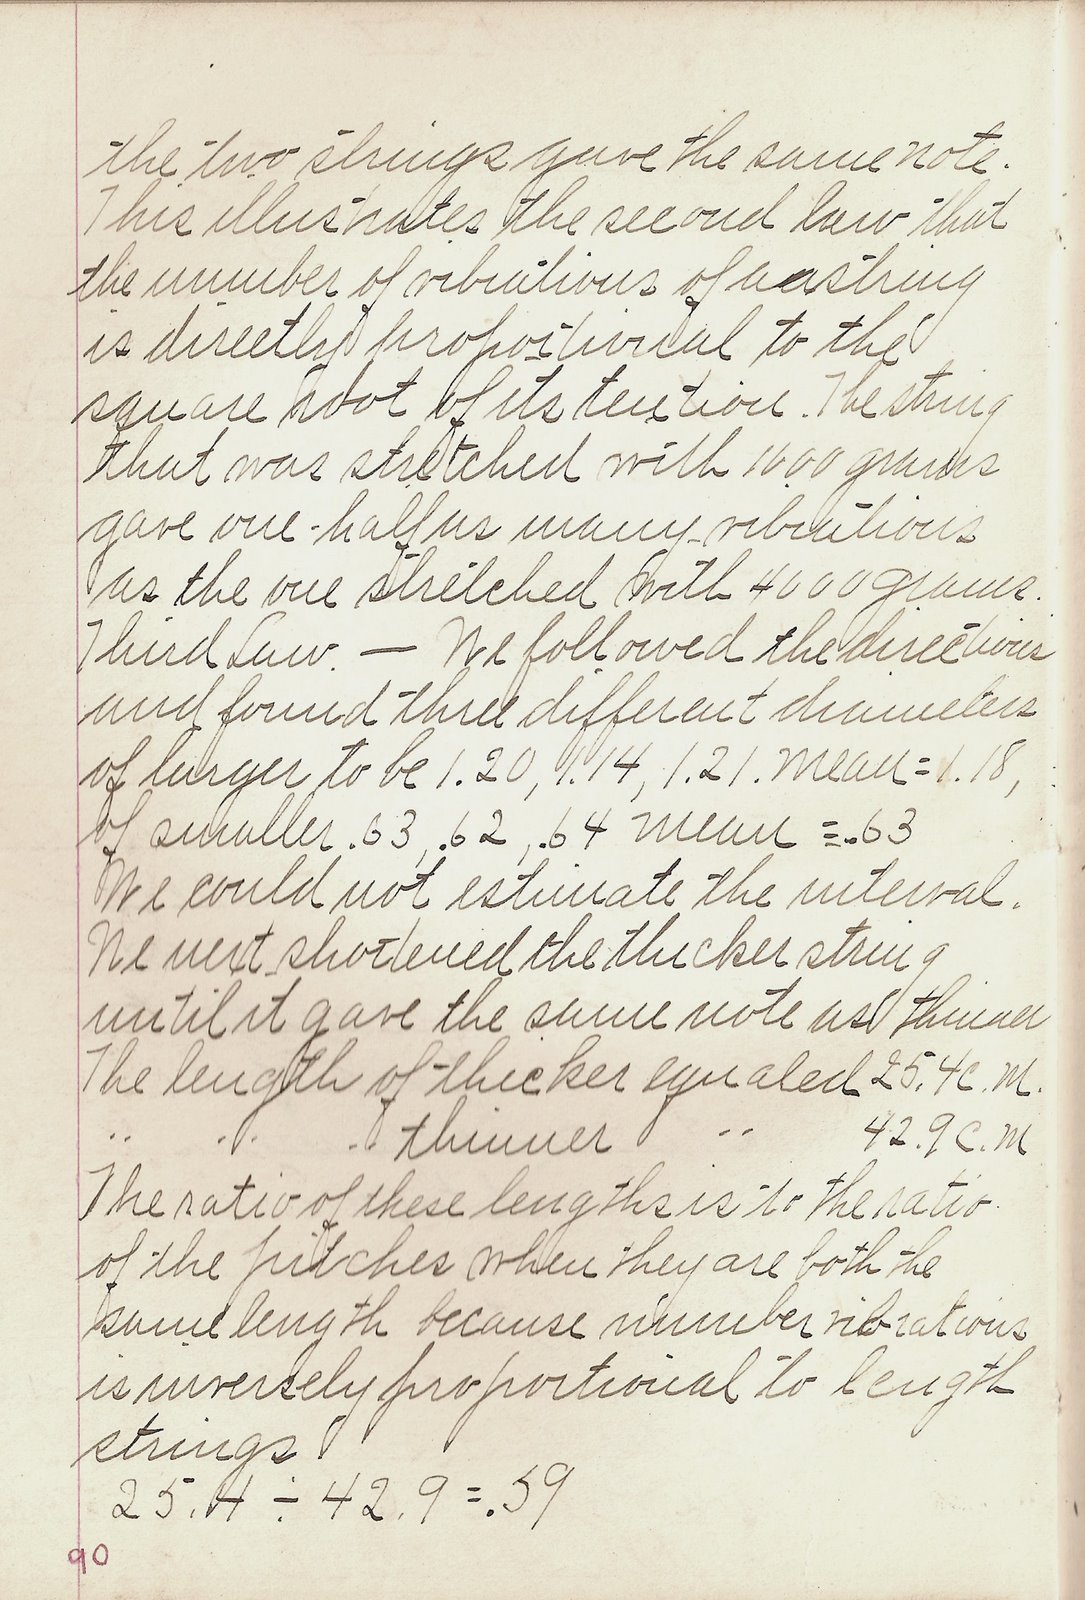 the two strings gave the same note.
This illustrates the second law that
the number of vibrations of a string
is directly proportional to the
square root of its tention. The string
that was stretched with 1000 grams
gave one-half as many vibrations
as the one stretched with 4000 grams.
Third Law. — We followed the directions
and found three different diameters
of larger to be 1.20, 1.14, 1.21. Mean = 1.18,
of smaller .63, .62, .64 Mean = .63
We could not estimate the interval.
We next shortened the thicker string
until it gave the same note as thinner
The length of thicker equaled 25.4 C.M.
" " " thinner " 42.9 C.M
The ratio of these lengths is to the ratio
of the pitches when they are both the
same length because number vibrations
is inversely proportional to length
strings
25.4 ÷ 42.9 = .59
90